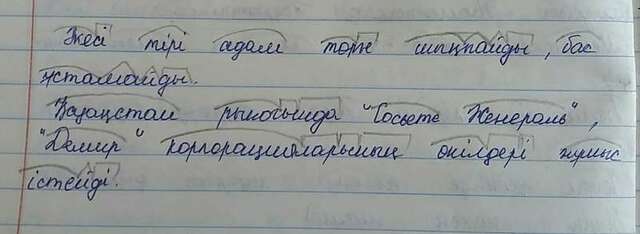 Жесі тірі адам торн шықпайды, бас
ұстамайды.
Қазақстан рыногында "Сосьете Женераль",
"Демир" корпорацияларының өкілдері жұмыс
істейді.